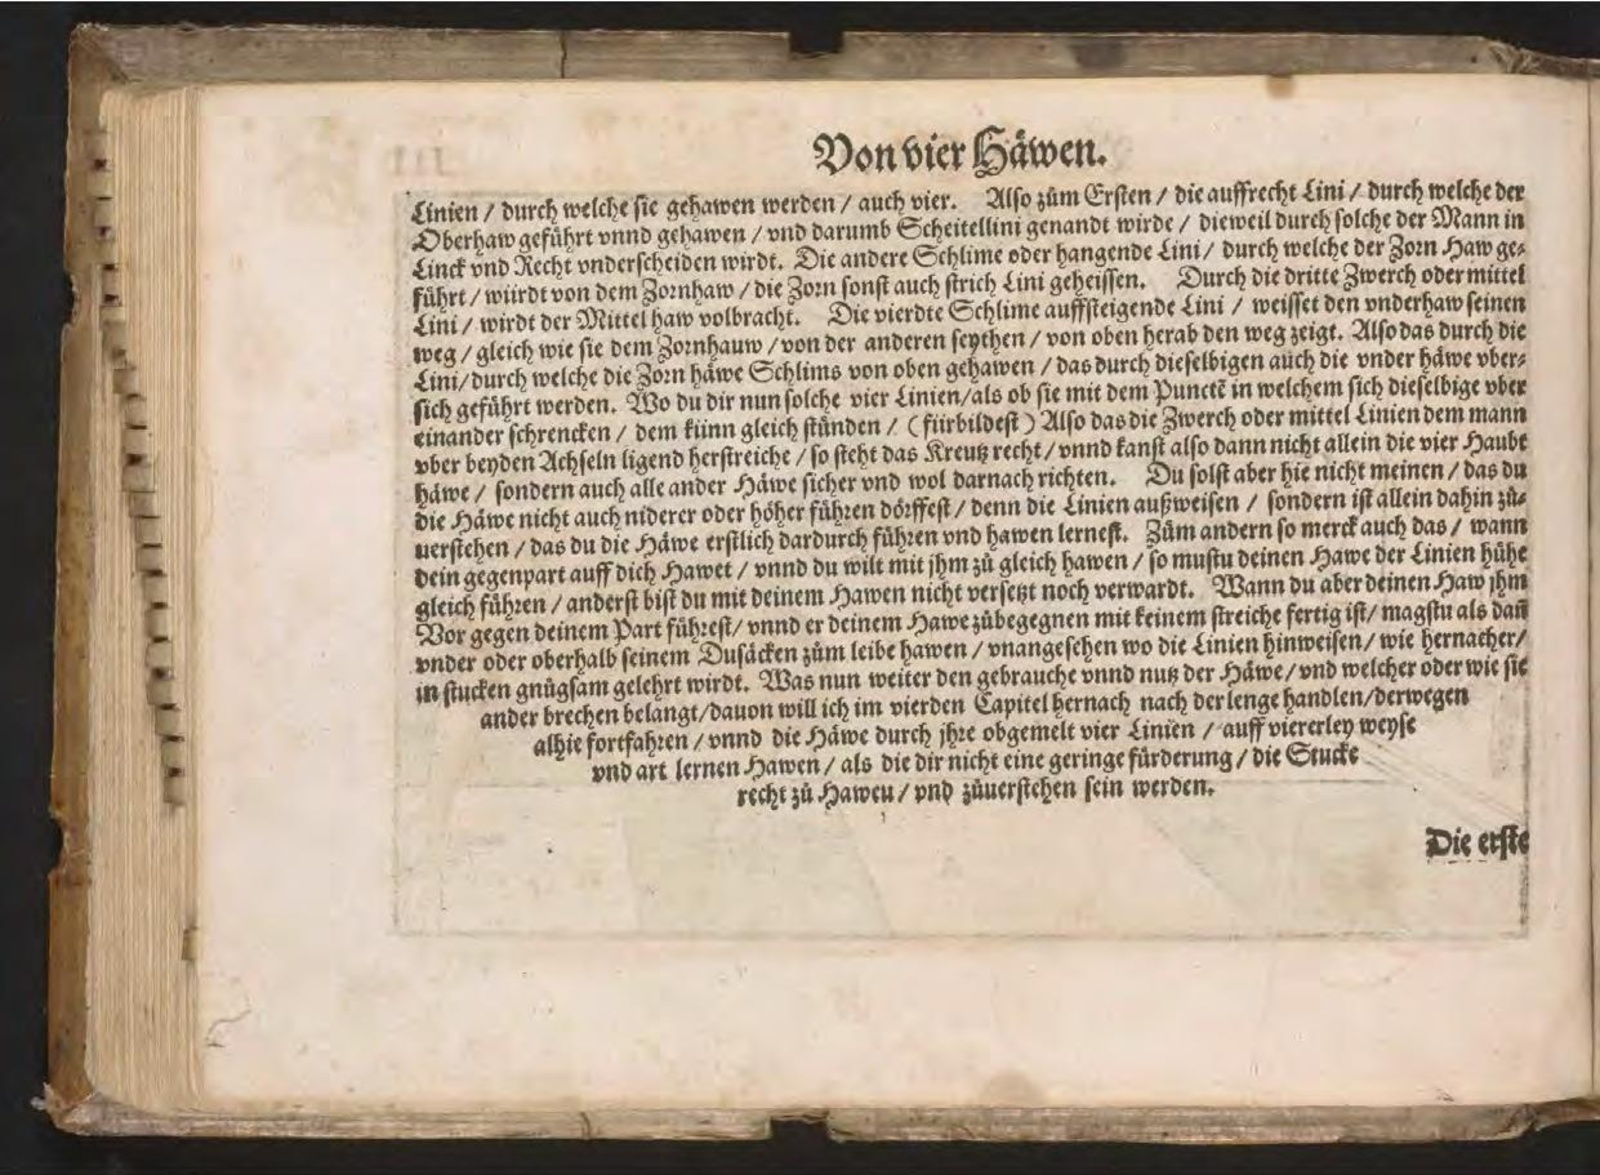 Von vier Häwen.
Linien / durch welche sie gehawen werden / auch vier. Also zům Ersten / die auffrecht Lini / durch welche der
Oberhaw geführt vnnd gehawen / vnd darumb Scheitellini genandt wirde / dieweil durch solche der Mann in
Linck vnd Recht vnderscheiden wirdt. Die andere Schlime oder hangende Lini / durch welche der Zorn Haw ge-
führt / würdt von dem Zornhaw / die Zorn sonst auch strich Lini geheissen. Durch die dritte Zwerch oder mittel
Lini / wirdt der Mittel haw volbracht. Die vierdte Schlime auffsteigende Lini / weisset den vnderhaw seinen
weg / gleich wie sie dem Zornhauw / von der anderen seythen / von oben herab den weg zeigt. Also das durch die
Lini / durch welche die Zorn häwe Schlims von oben gehawen / das durch dieselbigen auch die vnder häwe vber-
sich geführt werden. Wo du dir nun solche vier Linien / als ob sie mit dem Punctẽ in welchem sich dieselbige vber
einander schrencken / dem kiinn gleich stůnden / (fürbildest) Also das die Zwerch oder mittel Linien dem mann
vber beyden Achseln ligend herstreiche / so steht das Kreutz recht / vnnd kanst also dann nicht allein die vier Haubt
häwe / sondern auch alle ander Häwe sicher vnd wol darnach richten. Du solst aber hie nicht meinen / das du
die Häwe nicht auch niderer oder höher führen dörffest / denn die Linien außweisen / sondern ist allein dahin zů-
uerstehen / das du die Häwe erstlich dardurch führen vnd hawen lernest. Zům andern so merck auch das / wann
dein gegenpart auff dich Hawet / vnnd du wilt mit jhm zů gleich hawen / so mustu deinen Hawe der Linien hühe
gleich führen / anderst bist du mit deinem Hawen nicht versetzt noch verwardt. Wann du aber deinen Haw jhm
Vor gegen deinem Part führest / vnnd er deinem Hawe zůbegegnen mit keinem streiche fertig ist / magstu als dañ
vnder oder oberhalb seinem Dusäcken zům leibe hawen / vnangesehen wo die Linien hinweisen / wie hernacher /
in stucken gnůgsam gelehrt wirdt. Was nun weiter den gebrauche vnnd nutz der Häwe / vnd welcher oder wie sie
ander brechen belangt / dauon will ich im vierden Capitel hernach nach der lenge handlen / derwegen
alhie fortfahren / vnnd die Häwe durch jhre obgemelt vier Linien / auff viererley weyse
vnd art lernen Hawen / als die dir nicht eine geringe fürderung / die Stucke
recht zů Haweu / vnd zůuerstehen sein werden.
Die erste